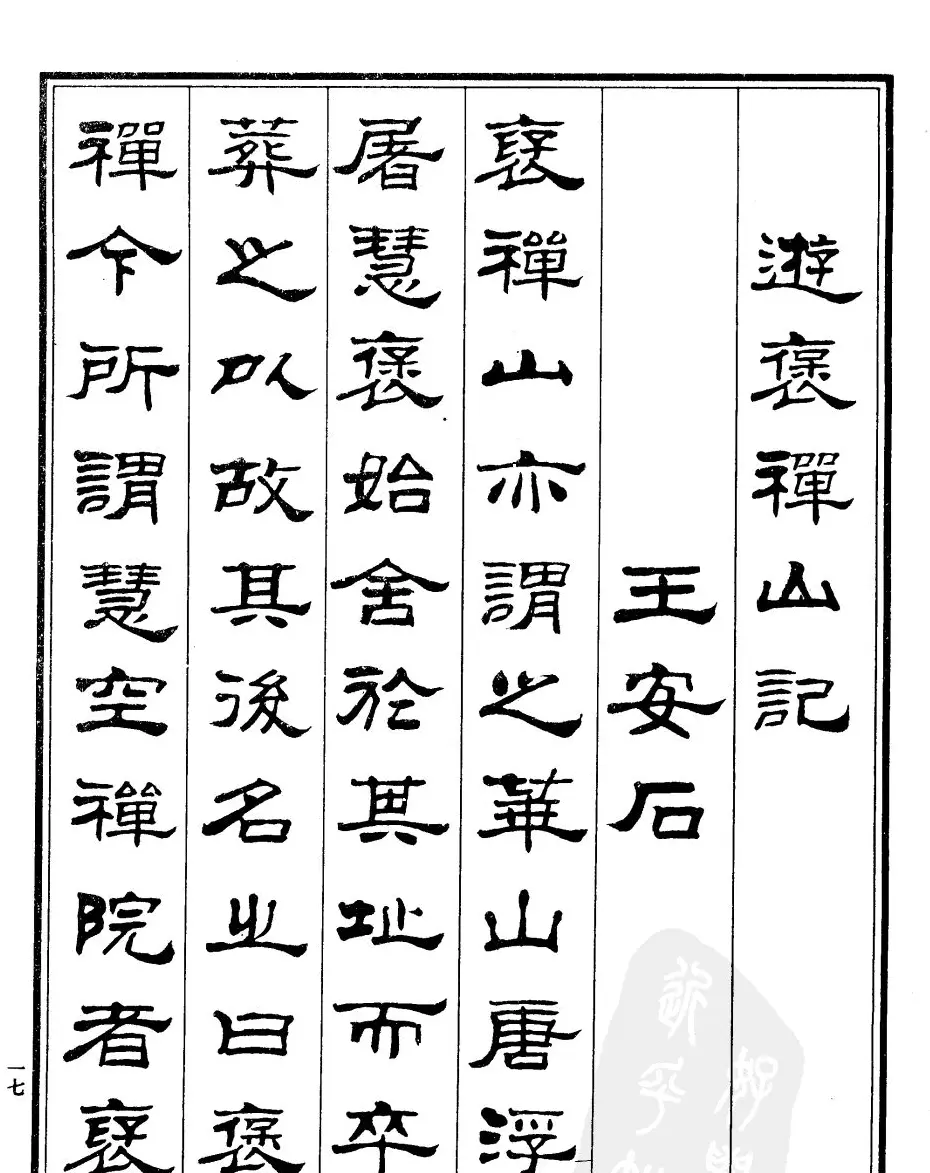 遊褒禪山記
王安石
褒禪山亦謂之華山唐浮
屠慧褒始舍於其址而卒
葬之以故其後名之曰褒
禪今所謂慧空禪院者褒
一七